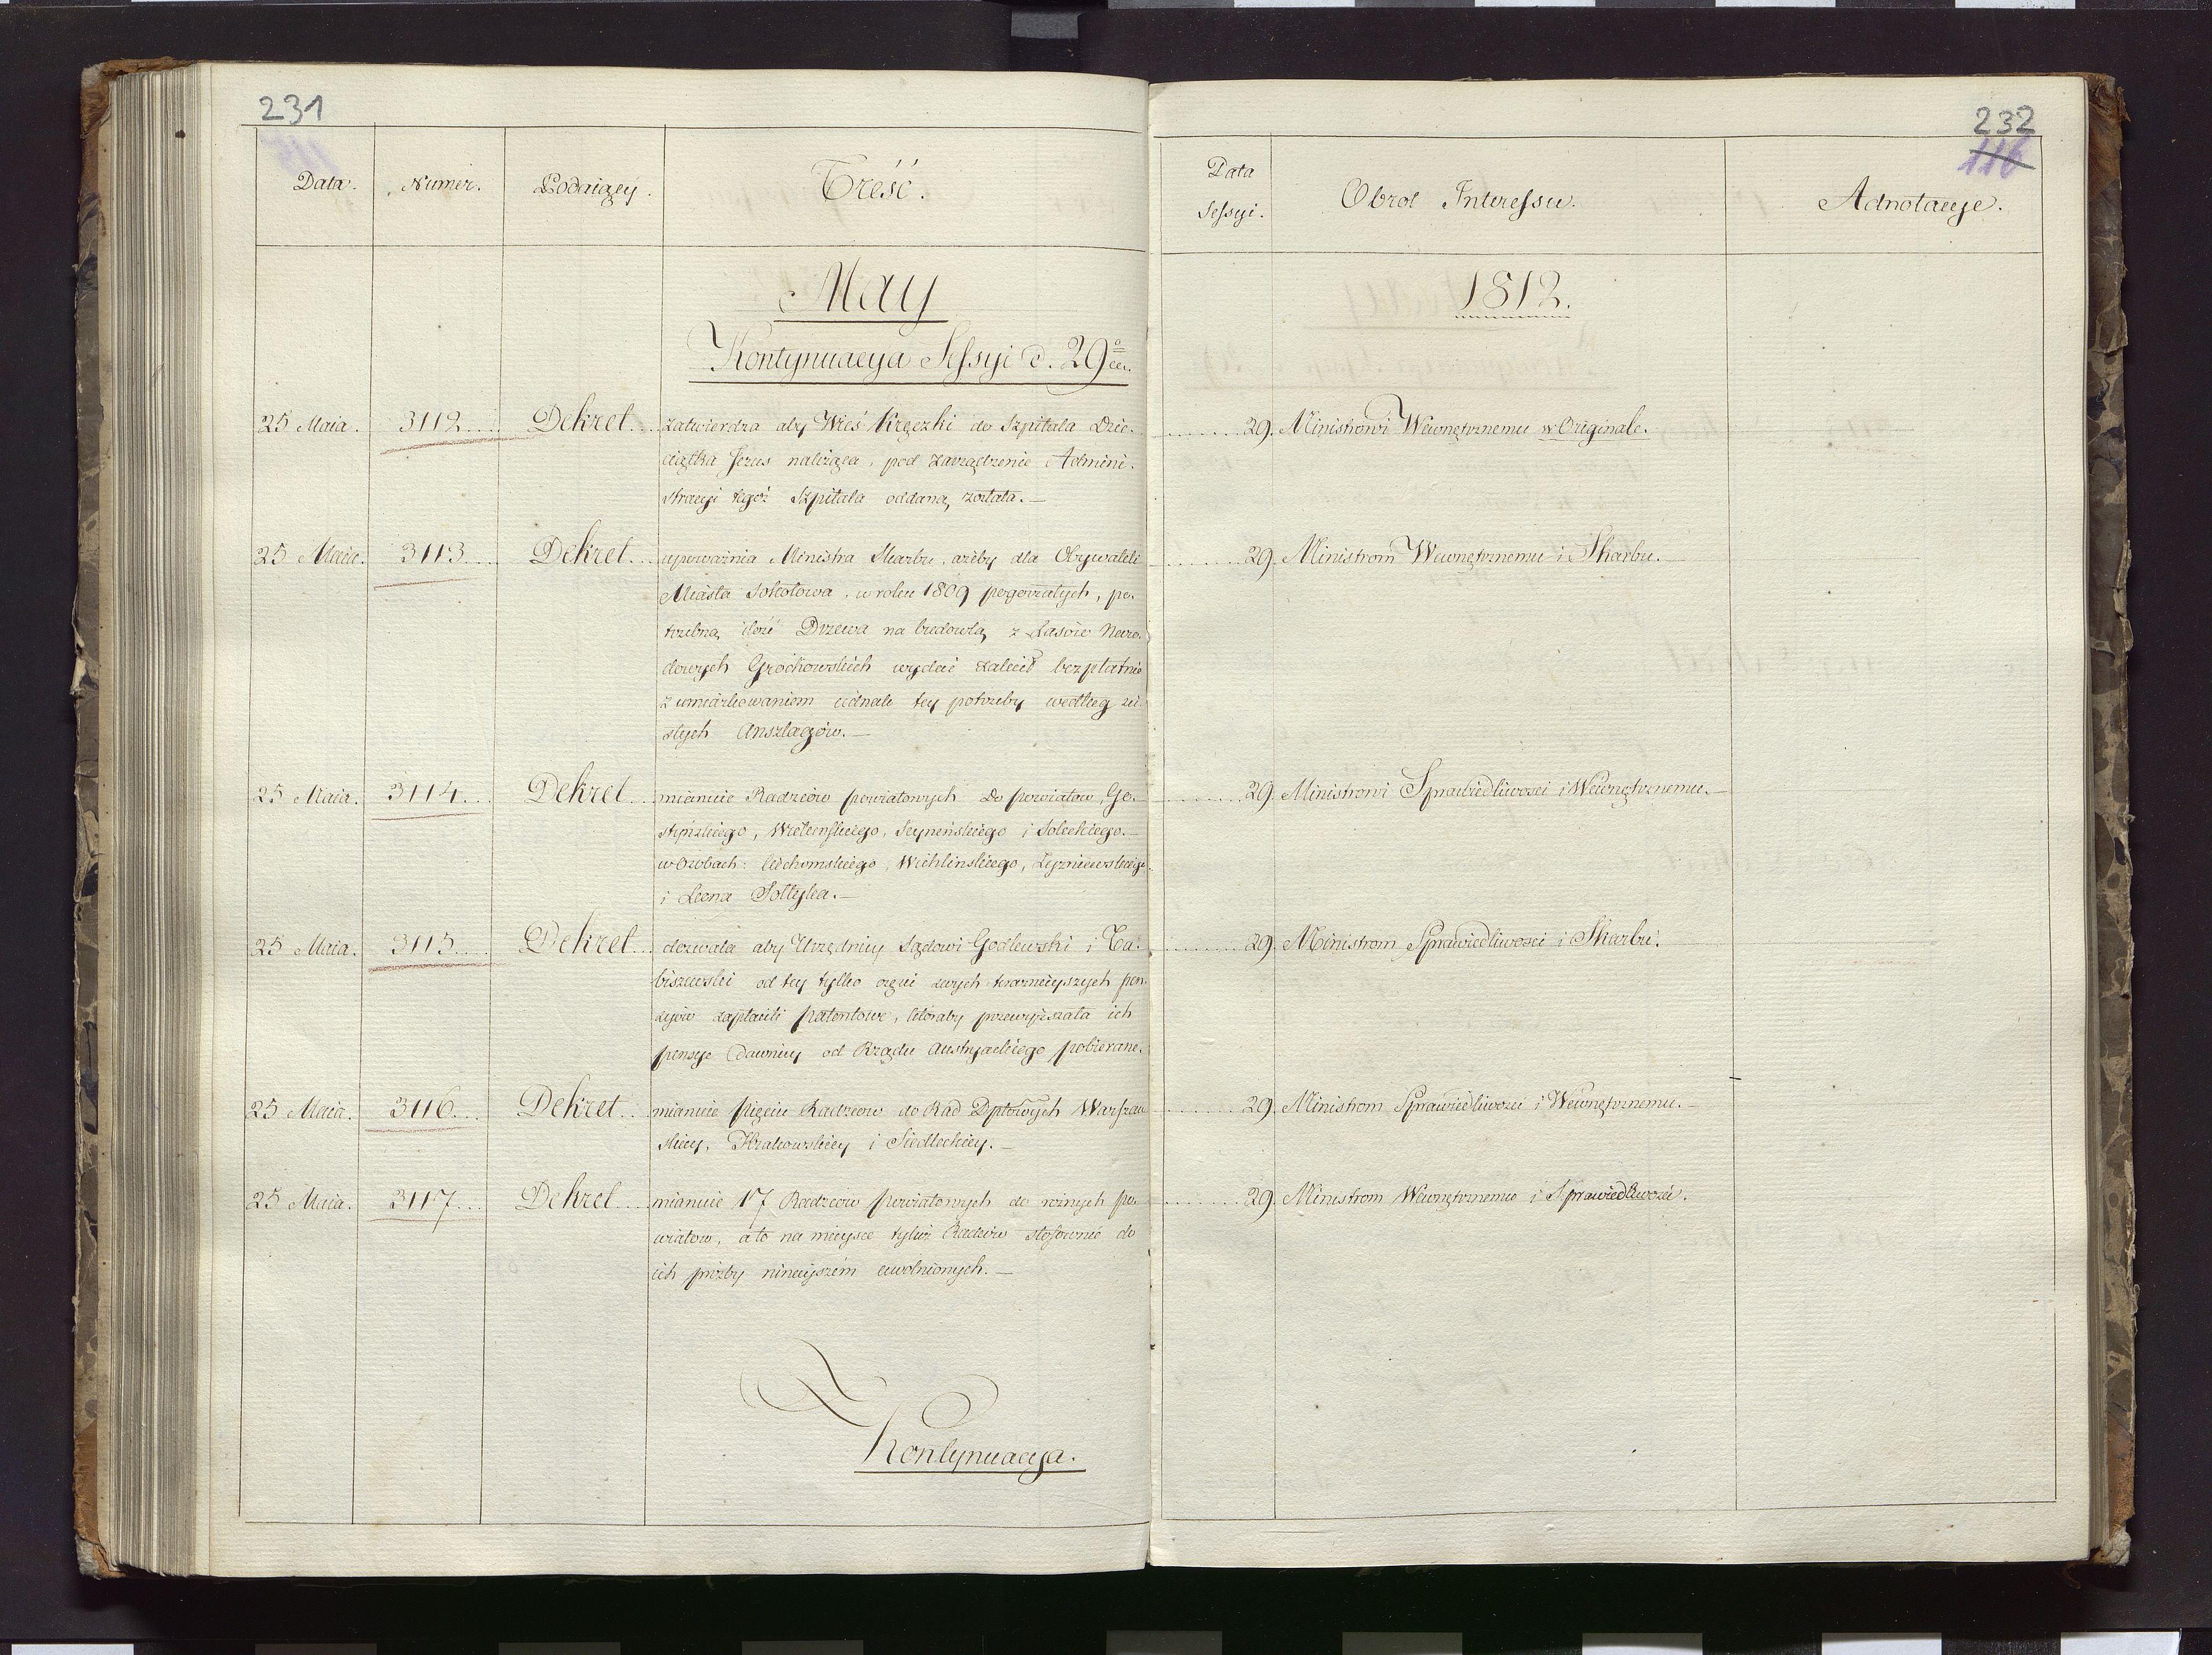 231
Data. Numer. Podaiący. Treść.
May
Kontynuacya Sessyi d. 29
25 Maia. 3112.... Dekret... zatwierdza aby Wieś Kręczki do Szpitala Dzie-
ciątka Jezus należąca, pod zarządzenie Admini-
stracyi tegoż Szpitala oddaną została.—
25 Maia. 3113.... Dekret... upoważnia Ministra Skarbu, ażeby dla Obywateli
Miasta Sokołowa, w roku 1809 pogorzałych, po-
trzebną ilość Drzewa na budowlą z Lasów Naro-
dowych Gróchowskich wydać zalecił bezpłatnie
z umiarkowaniem iednak tey potrzeby według ści-
słych Anszlagów.—
25 Maia. 3114... Dekret... mianuie Radzców powiatowych do powiatow, Go-
styńskiego, Wieluńskiego, Seyneńskiego i Soleckiego.—
w Osobach: Cichomskiego, Wichlinskiego,
i Leona Sołtyka.—
25 Maia. 3115.... Dekret... dozwala aby Urzędnicy Sądowi Godlewski i Ta-
biszewski od tey tylko części swych teraznieyszych pen-
syów zapłacili patentowe, któraby przewyższała ich
pensye dawniey od Rządu Austryackiego pobierane.
25 Maia. 3116.... Dekret... mianuie pięciu Radzców do Rad Dptowych Warszaw-
skiey, Krakowskiey i Siedleckiey.—
25 Maia. 3117... Dekret.... mianuie 17 Radzców powiatowych do roznych po-
wiatow, a to na mieysce tyluż Radzców stósownie do
ich prózby ninieyszém uwolnionych.—
Kontynuacya.
232
116
Data
Sessyi. Obrot Interessu. Adnotacye.
1812.
29. Ministrowi Wewnętrznemu w Originale.
29. Ministrom Wewnętrznemu i Skarbu.—
29. Ministrowi Sprawiedliwosci i Wewnętrznemu.—
29. Ministrom Sprawiedliwosci i Skarbu.
29. Ministrom Sprawiedliwosci i Wewnętrznemu.—
29. Ministrom Wewnętrznemu i Sprawiedliwości.